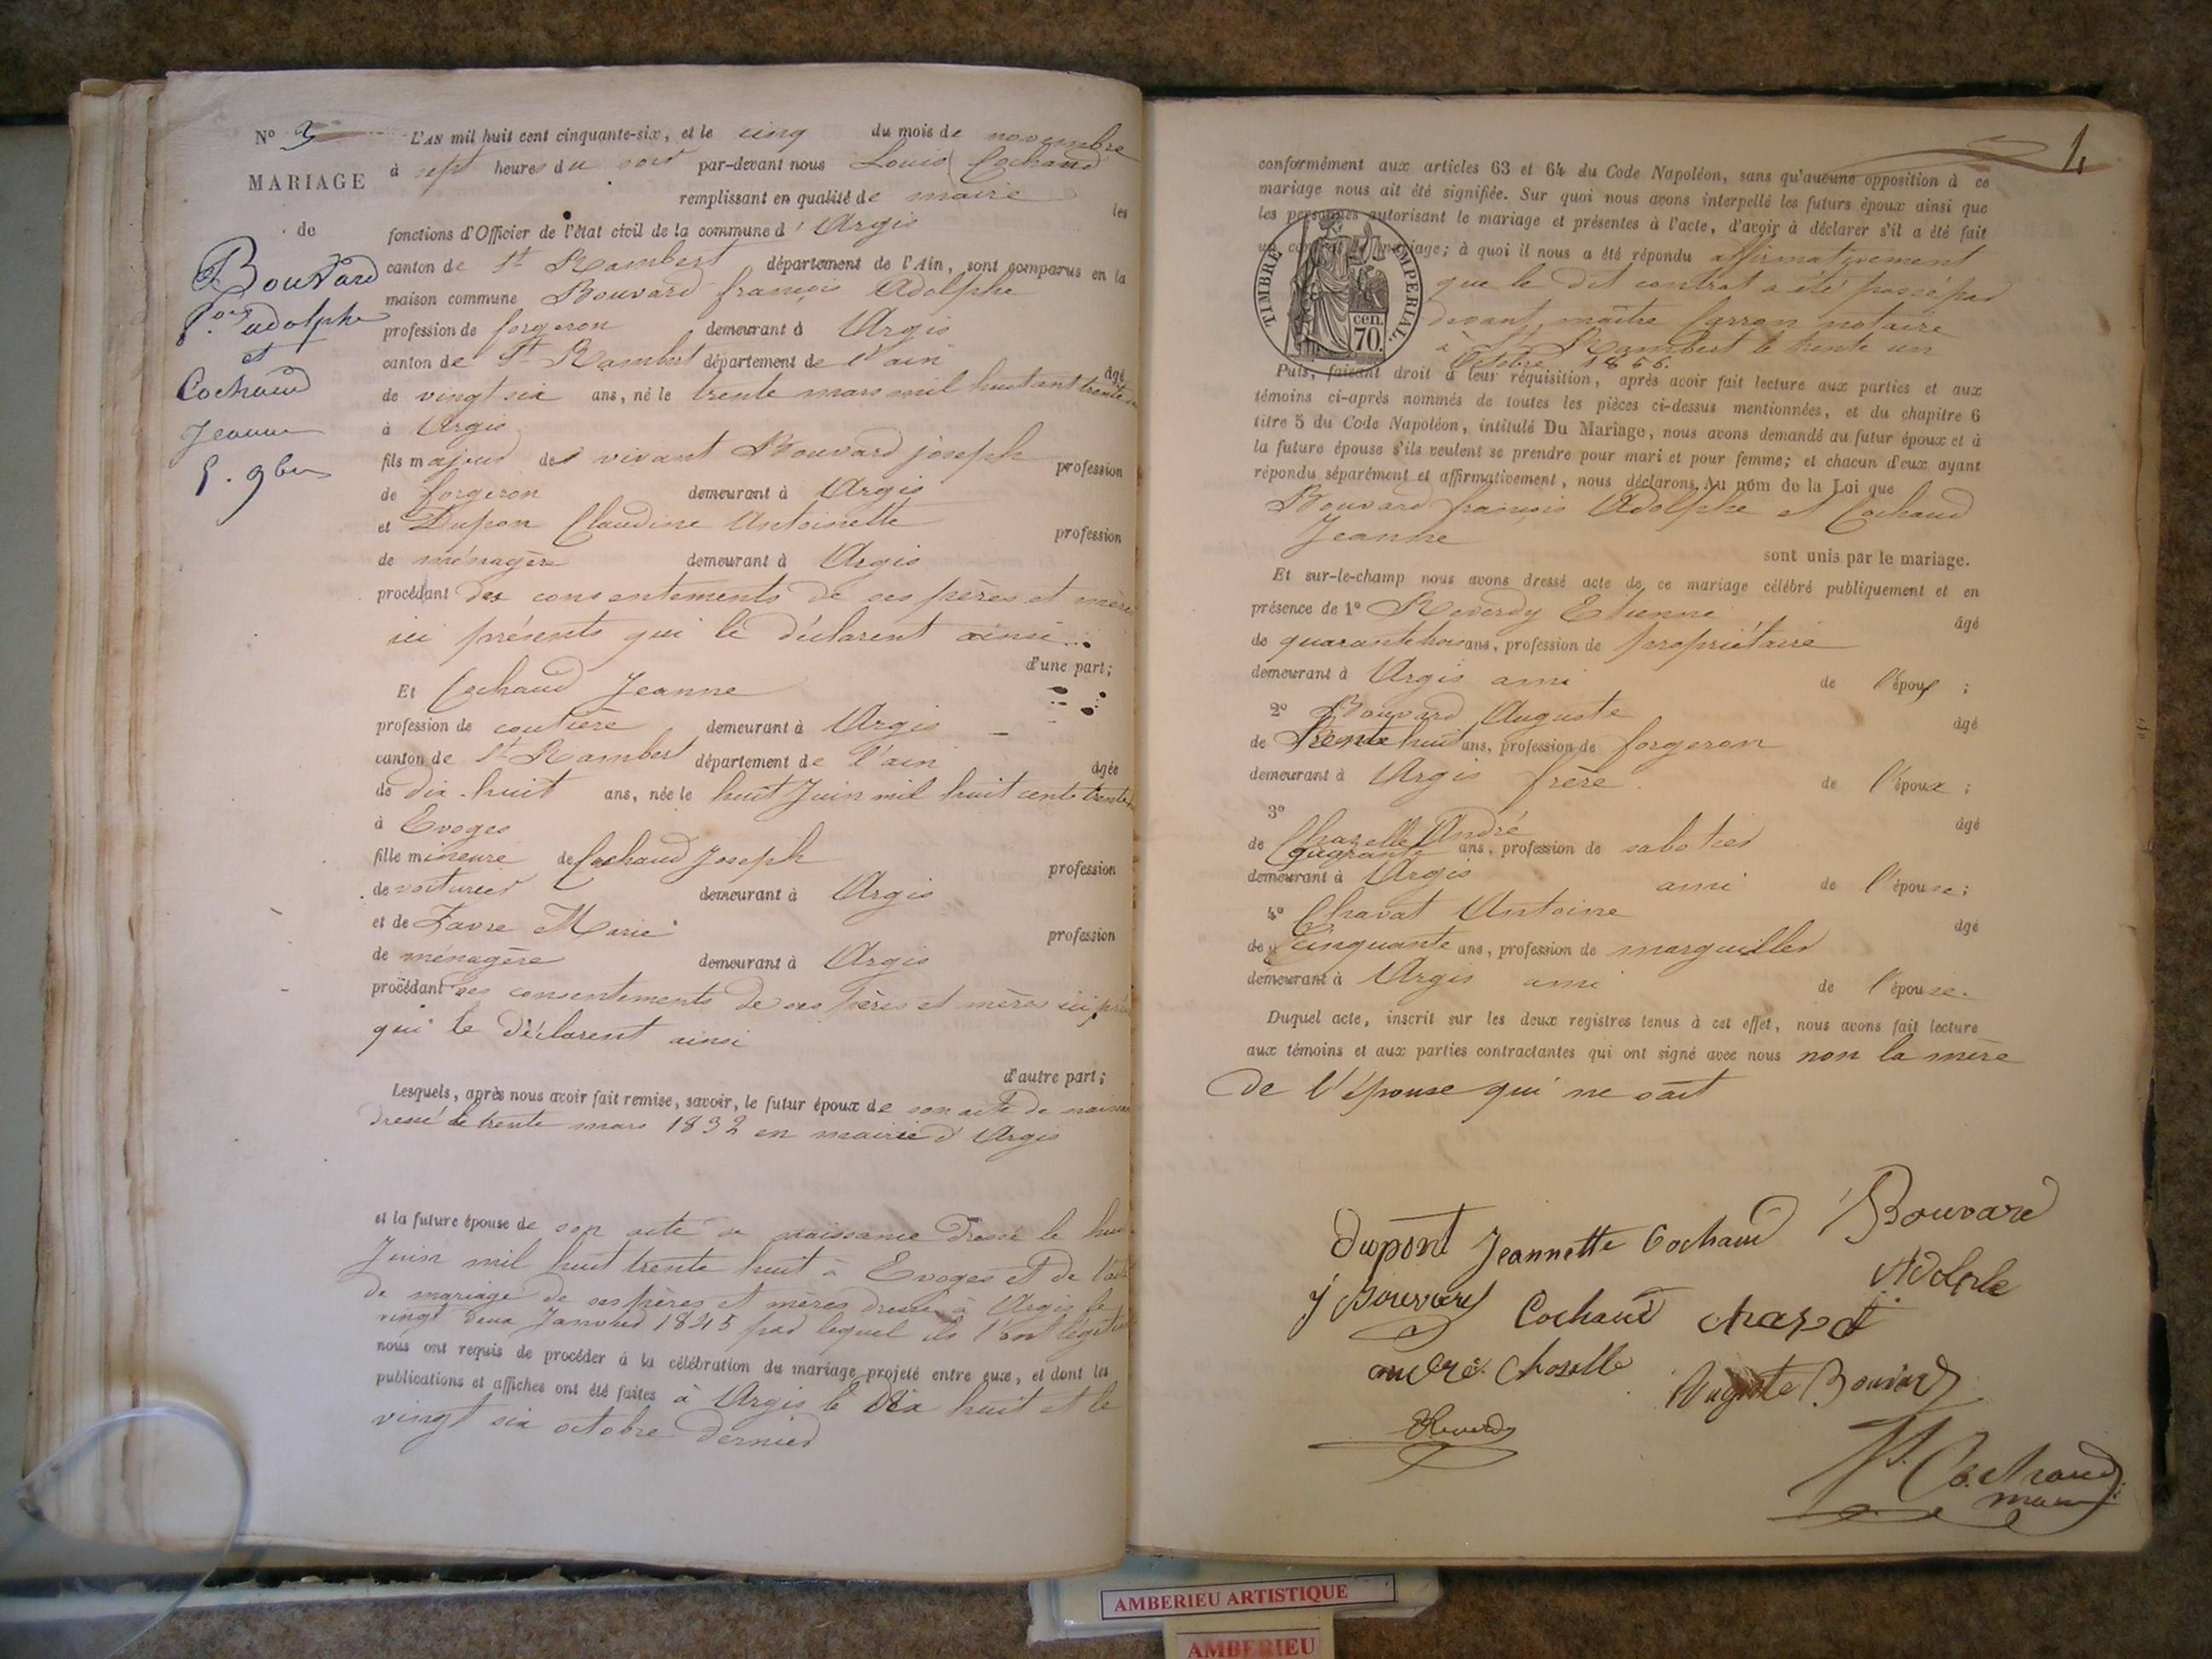 N° 3
MARIAGE
de
Bouvard
f.ois adolphe
et
Cochaud
Jeanne
5. 9bre
L'AN mil huit cent cinquante-six, et le cinq du mois de novembre
à sept heures du soir par-devant nous Louis Cochaud
remplissant en qualité de maire les
fonctions d'Officier de l'état civil de la commune d'Argis
canton de St Rambert département de l'Ain, sont comparus en la
maison commune Bouvard françois Adolphe
profession de forgeron demeurant à Argis
canton de St Rambert département de l'ain âgé
de vingt six ans, né le trente mars mil huit cent trente
à Argis
fils majeur des vivant Bouvard joseph profession
de forgeron demeurant à Argis
et Dupon Claudine Antoinette profession
de ménagère demeurant à Argis
procédant des consentements de ses pères et mères
ici présents qui le déclarent ainsi
d'une part;
Et Cochaud Jeanne
profession de coutière demeurant à Argis
canton de St Rambert département de l'ain âgée
de dix-huit ans, née le huit Juin mil huit cent trente
à Evoges
fille mineure de Cochaud Joseph profession
de voiturier demeurant à Argis
et de Favre Marie profession
de ménagère demeurant à Argis
procédant des consentements de ses pères et mères ici
qui le déclarent ainsi
d'autre part;
Lesquels, après nous avoir fait remise, savoir, le futur époux de son acte de
dressé le trente mars 1832 en mairie d'Argis
et la future épouse de son acte de naissance dressé le
Juin mil huit trente huit à Evoges et de
de mariage de ses pères et mères dressé à Argis le
vingt deux Janvier 1845 par lequel ils l'ont
nous ont requis de procéder à la célébration du mariage projeté entre eux, et dont les
publications et affiches ont été faites à Argis le dix huit et le
vingt six octobre dernier
4
conformément aux articles 63 et 64 du Code Napoléon, sans qu'aucune opposition à ce
mariage nous ait été signifiée. Sur quoi nous avons interpellé les futurs époux ainsi que
les personnes autorisant le mariage et présentes à l'acte, d'avoir à déclarer s'il a été fait
un contrat de mariage; à quoi il nous a été répondu affirmativement
que le dit contrat a été passé par
devant maître Carron notaire
à St Rambert le trente un
Octobre 1856.
TIMBRE IMPERIAL
cen.
70.
Puis, faisant droit à leur réquisition, après avoir fait lecture aux parties et aux
témoins ci-après nommés de toutes les pièces ci-dessus mentionnées, et du chapitre 6
titre 5 du Code Napoléon, intitulé Du Mariage, nous avons demandé au futur époux et à
la future épouse s'ils veulent se prendre pour mari et pour femme; et chacun d'eux ayant
répondu séparément et affirmativement, nous déclarons, Au nom de la Loi que
Bouvard françois Adolphe et Cochaud
Jeanne
sont unis par le mariage.
Et sur-le-champ nous avons dressé acte de ce mariage célébré publiquement et en
présence de 1° Reverdy Etienne âgé
de quarante trois ans, profession de propriétaire
demeurant à Argis ami de l'époux ;
2° Bouvard Auguste âgé
de trente huit ans, profession de forgeron
demeurant à Argis frère de l'époux ;
3° Chazelle André âgé
de quarante ans, profession de sabotier
demeurant à Argis ami de l'épouse;
4° Chavat Antoine âgé
de cinquante ans, profession de marguiller
demeurant à Argis ami de l'épouse.
Duquel acte, inscrit sur les deux registres tenus à cet effet, nous avons fait lecture
aux témoins et aux parties contractantes qui ont signé avec nous non la mère
de l'épouse qui ne sait
Dupont Jeannette Cochaud Bouvard
Adolphe
j Bouvard Cochaud
andré Auguste Bouvard
Cochaud
AMBERIEU ARTISTIQUE
AMBERIEU